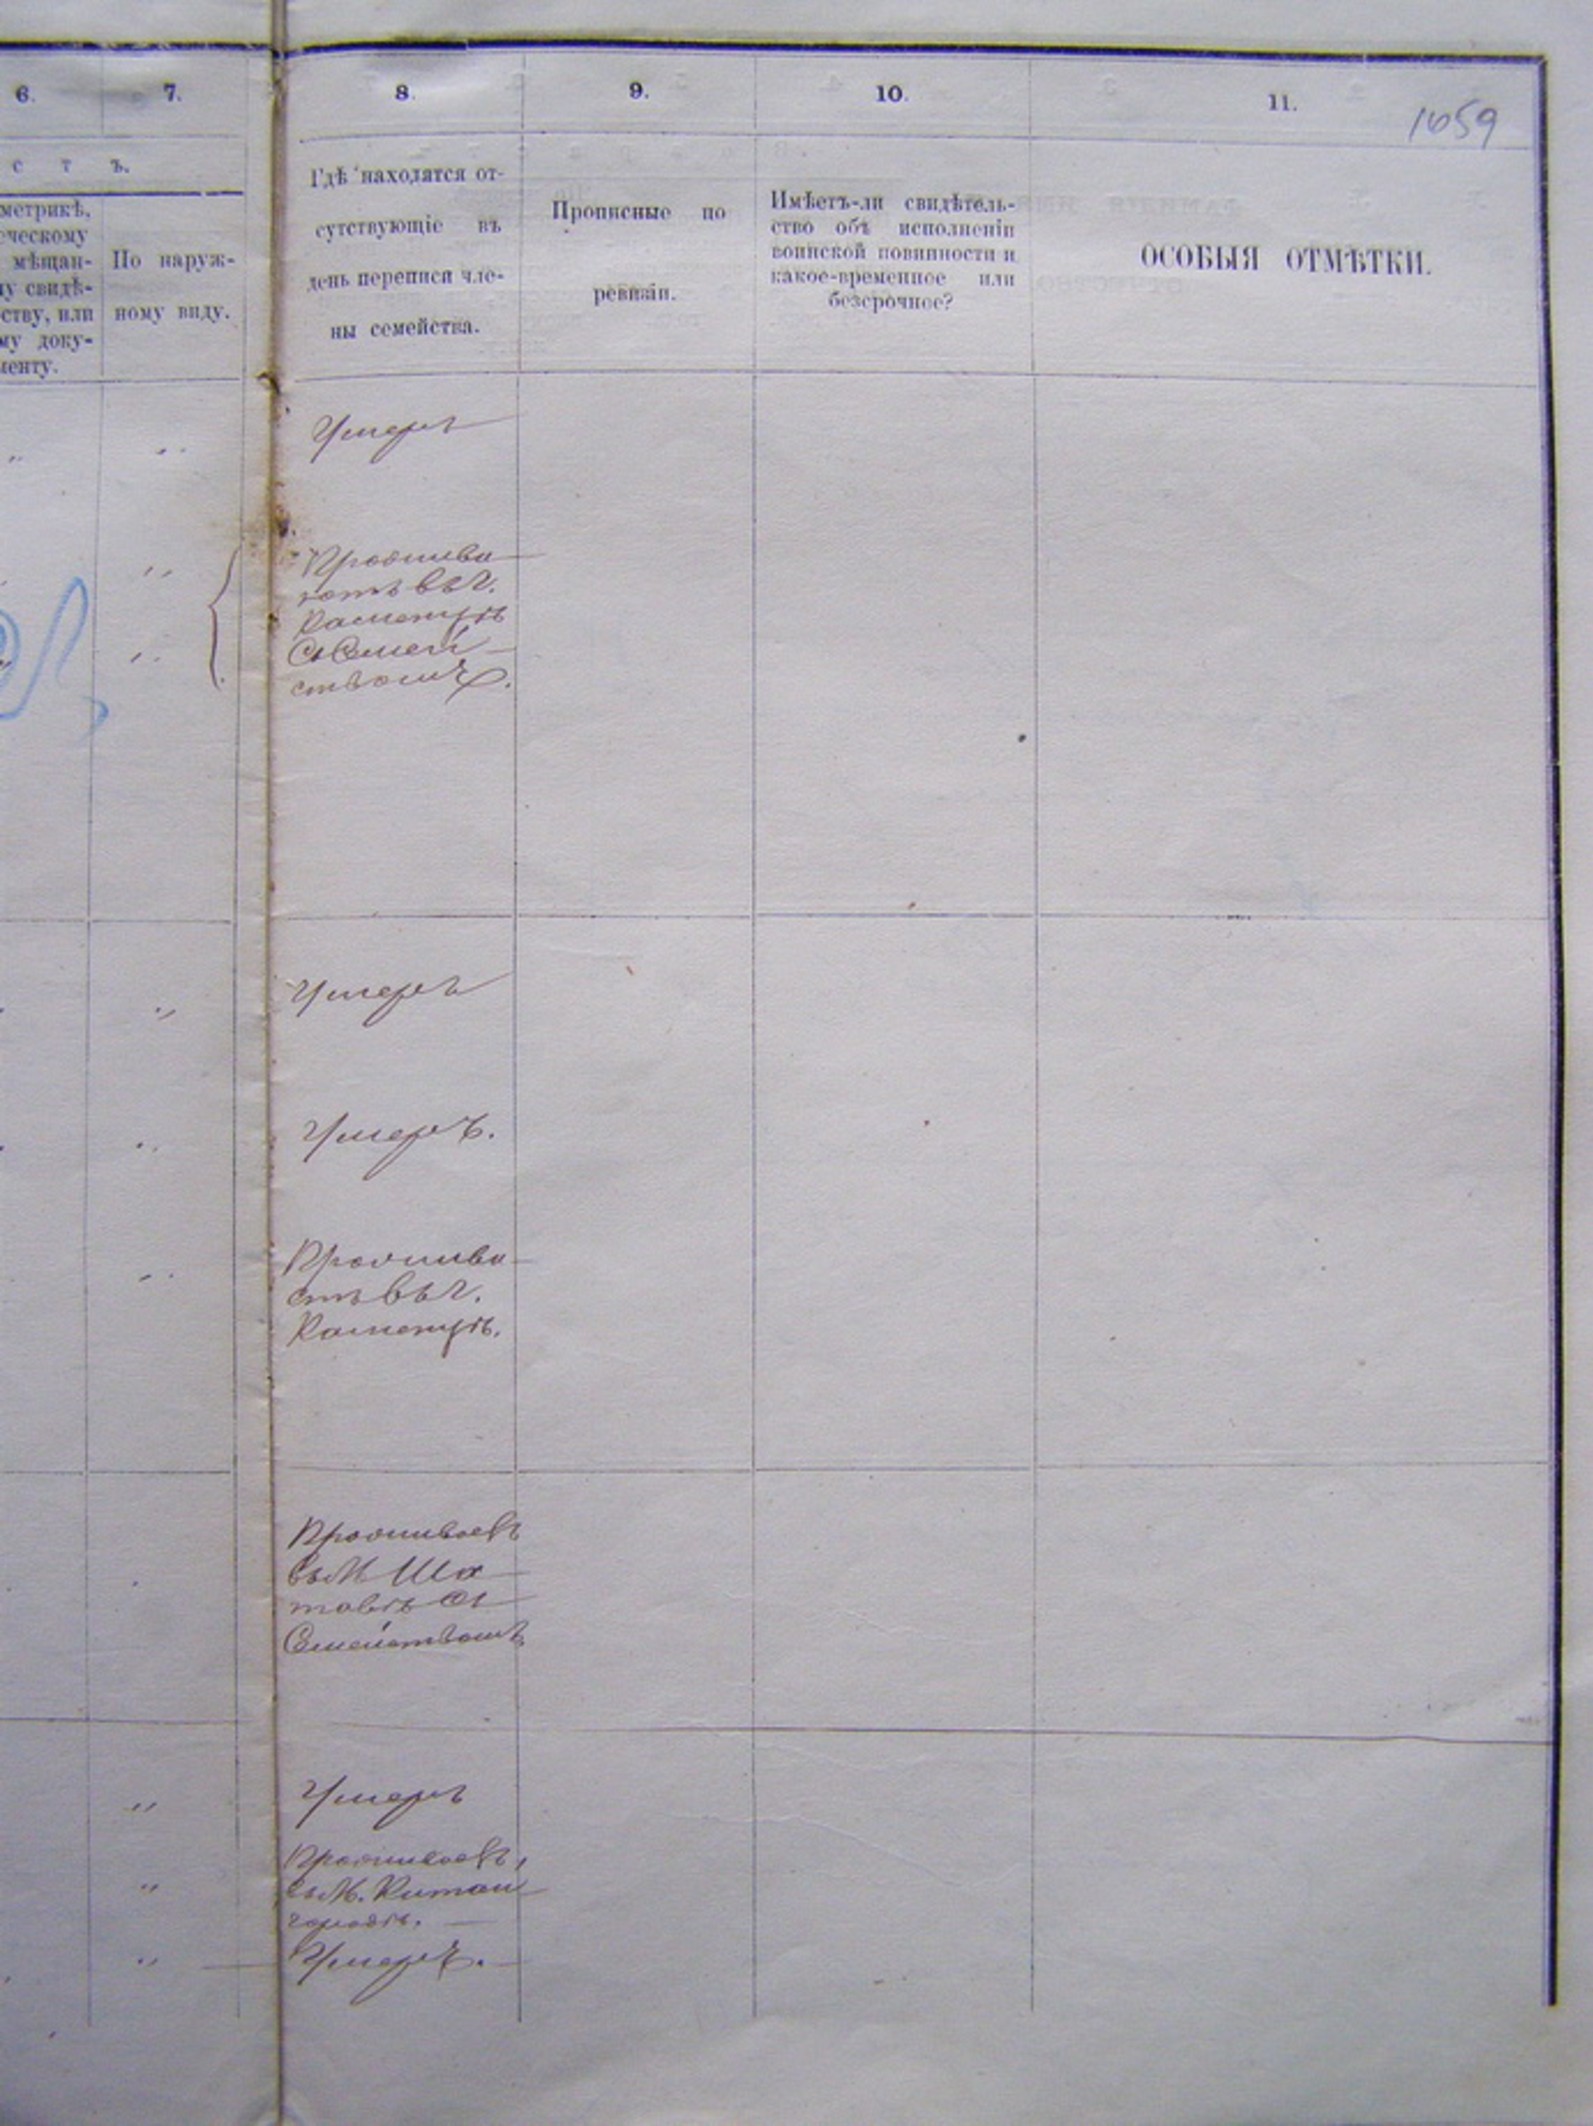 6.
7.
8.
9.
10.
11.
1659
с т ъ.
метрикѣ,
ческому
мѣщан-
у свидѣ-
ству, или
му доку-
менту.
По наруж-
ному виду.
Гдѣ находятся от-
сутствующіе въ
день переписи чле-
ны семейства.
Прописные по
ревизіи.
Имѣетъ-ли свидѣтель-
ство объ исполненіи
воинской повинности и
какое-временное или
безсрочное?
ОСОБЫЯ ОТМѢТКИ.
Умеръ
Прожива
ютъ въ г.
Каменцѣ
съ Семей
ствомъ.
Умеръ
Умеръ.
Прожива
етъ въ г.
Каменцѣ.
Проживаетъ
въ М Ша
тавѣ съ
Семействомъ
Умеръ
Проживаетъ,
въ М. Китай
городѣ.
Умеръ.